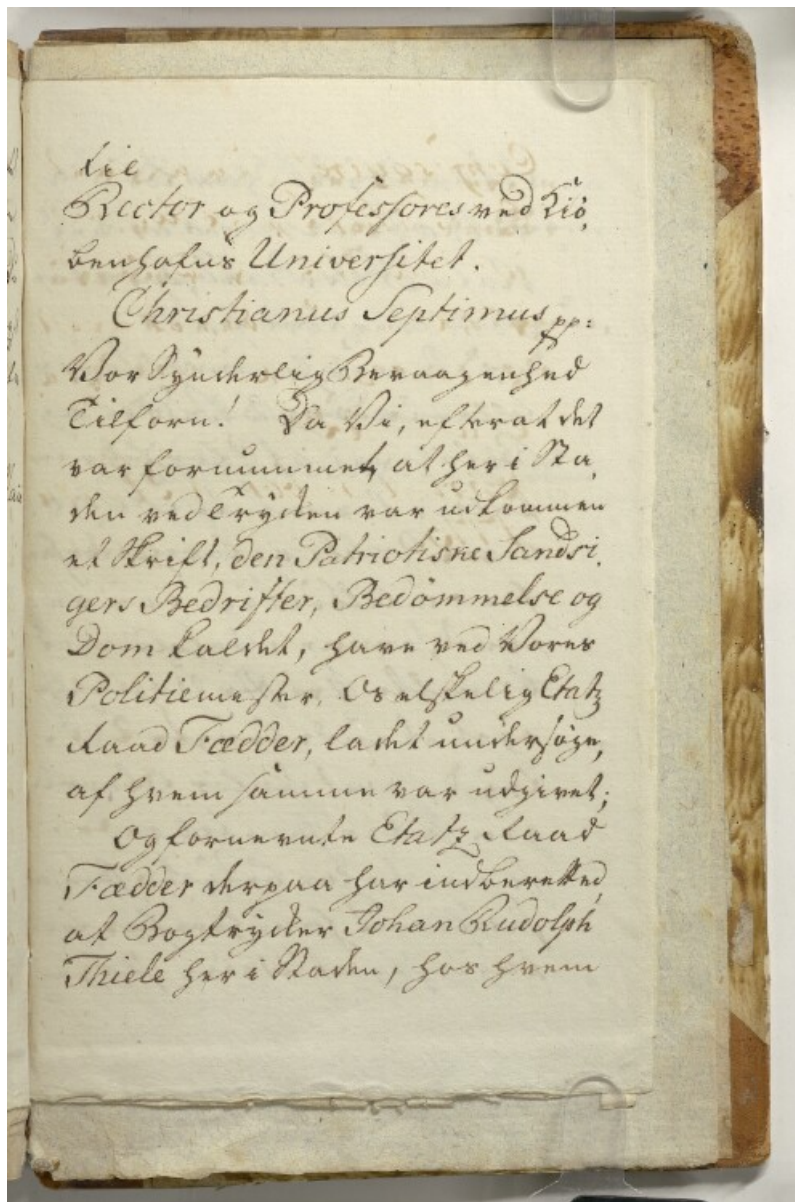 til
Rector og Professores ved Kiö,
benhafns Universitet.
Christianus Septimus pp:
Vor Synderlig Bevaagenhed
Tilforn! Da Vi, efterat det
var fornummet, at her i Sta,
den ved Trykken var udkommen
et Skrift, den Patriotiske Sandsi,
gers Bedrifter, Bedömmelse og
Dom kaldet, have ved Vores
Politiemester, Os elskelig Etatz
Raad Fædder, ladet undersøge,
af hvem samme var udgivet;
Og fornevnte Etatz Raad
Fædder derpaa har indberetted,
at Bogtrykker Johan Rudolph
Thiele her i Staden, hos hvem